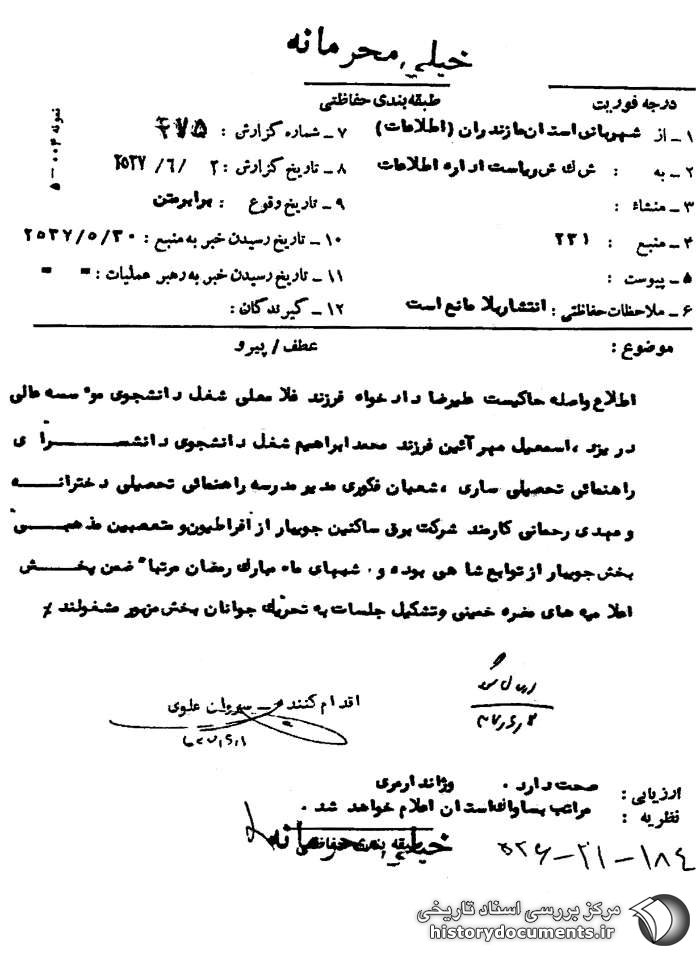 خیلی محرمانه
درجه فوریت
طبقه‌بندی حفاظتی
نمونه ۰۰۴ – ۵
۱ – از شهربانی استان مازندران (اطلاعات)
۲ – به : ش ک ش ریاست اداره اطلاعات
۳ – منشاء :
۴ – منبع : ۲۳۱
۵ – پیوست :
۶ – ملاحظات حفاظتی : انتشار بلا مانع است
۷ – شماره گزارش : ۲۷۵
۸ – تاریخ گزارش : ۲ /۶/ ۲۵۳۷
۹ – تاریخ وقوع : برابر متن
۱۰ – تاریخ رسیدن خبر به منبع : ۲۵۳۷/۵/۳۰
۱۱ – تاریخ رسیدن خبر به رهبر عملیات : - -
۱۲ – گیرندگان :
موضوع :
عطف / پیرو
اطلاع واصله حاکیست علیرضا دادخواه فرزند غلامعلی شغل دانشجوی موسسه عالی
در یزد ، اسمعیل مهر آئین فرزند محمد ابراهیم شغل دانشجوی دانشسرای
راهنمائی تحصیلی ساری ، شعبان فکوری مدیر مدرسه راهنمائی تحصیلی دخترانه
و مهدی رحمانی کارمند شرکت برق ساکنین جویبار از افراطیون و متعصبین مذهبی
بخش جویبار از توابع شاهی بوده و . شبهای ماه مبارک رمضان مرتبا" ضمن پخش
اعلامیه های مضره خمینی و تشکیل جلسات به تحریک جوانان بخش مزبور مشغولند
اقدام کننده – سروان علوی
ارسال شد
ارزیابی : صحت دارد . وژاندارمری
نظریه : مراتب بساواک استان اعلام خواهد شد .
طبقه بندی حفاظتی
خیلی محرمانه
۵۲۶ – ۲۱ – ۱۸۴
مرکز بررسی اسناد تاریخی
historydocuments.ir